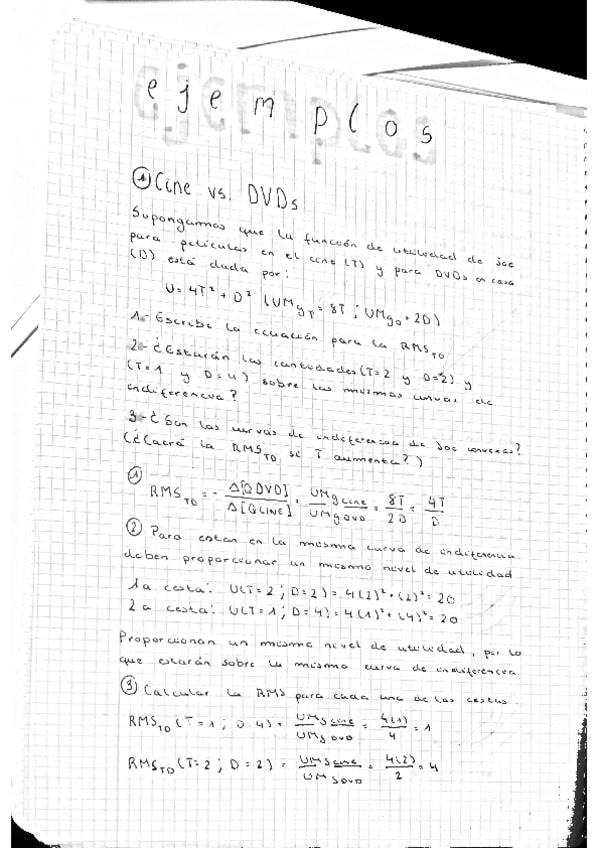 ejemplos
① Cine vs. DVDs
Supongamos que la función de utilidad de Joe
para películas en el cine (T) y para DVDs en casa
(D) está dada por:
U = 4T² + D² (UMg_T = 8T ; UMg_D = 2D)
1.- Escribe la ecuación para la RMS_TD
2.- ¿Estarán las cantidades (T=2 y D=2) y
(T=1 y D=4) sobre las mismas curvas de
indiferencia?
3.- ¿Son las curvas de indiferencia de Joe convexas?
(¿Caerá la RMS_TD si T aumenta?)
①
RMS_TD = - Δ[QDVD] / Δ[QCINE] = UMg CINE / UMg DVD = 8T / 2D = 4T / D
② Para estar en la misma curva de indiferencia
deben proporcionar un mismo nivel de utilidad
1a cesta: U(T=2 ; D=2) = 4(2)² + (2)² = 20
2a cesta: U(T=1 ; D=4) = 4(1)² + (4)² = 20
Proporcionan un mismo nivel de utilidad, por lo
que estarán sobre la misma curva de indiferencia
③ Calcular la RMS para cada una de las cestas.
RMS_TD (T=1 ; D=4) = UMg cine / UMg DVD = 4(1) / 4 = 1
RMS_TD (T=2 ; D=2) = UMg cine / UMg DVD = 4(2) / 2 = 4